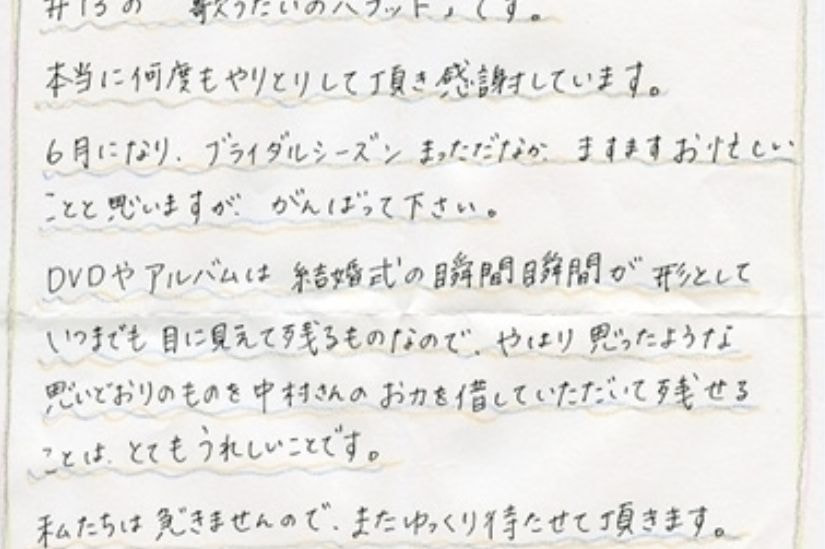 #13の「歌うたいのバラッド」です。
本当に何度もやりとりして頂き感謝しています。
6月になり、ブライダルシーズンまっただなか、ますますお忙しい
ことと思いますが、がんばって下さい。
DVDやアルバムは結婚式の瞬間瞬間が形として
いつまでも目に見えて残るものなので、やはり思ったような
思いどおりのものを中村さんのお力を借していただいて残せる
ことは、とてもうれしいことです。
私たちは急ぎませんので、またゆっくり待たせて頂きます。